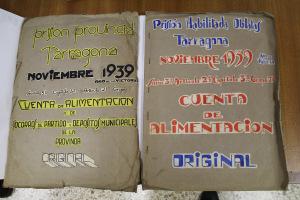 prisión provincial
Tarragona
NOVIEMBRE 1939
AÑO DE LA VICTORIA
CUENTA DE ALIMENTACION
DE
SOCORROS DE PARTIDO Y DEPOSITO MUNICIPALE
DE LA
PROVINCIA
ORIGINAL
Prisión Habilitada Oblatas
Tarragona
NOVIEMBRE 1939
CUENTA
DE
ALIMENTACION
ORIGINAL